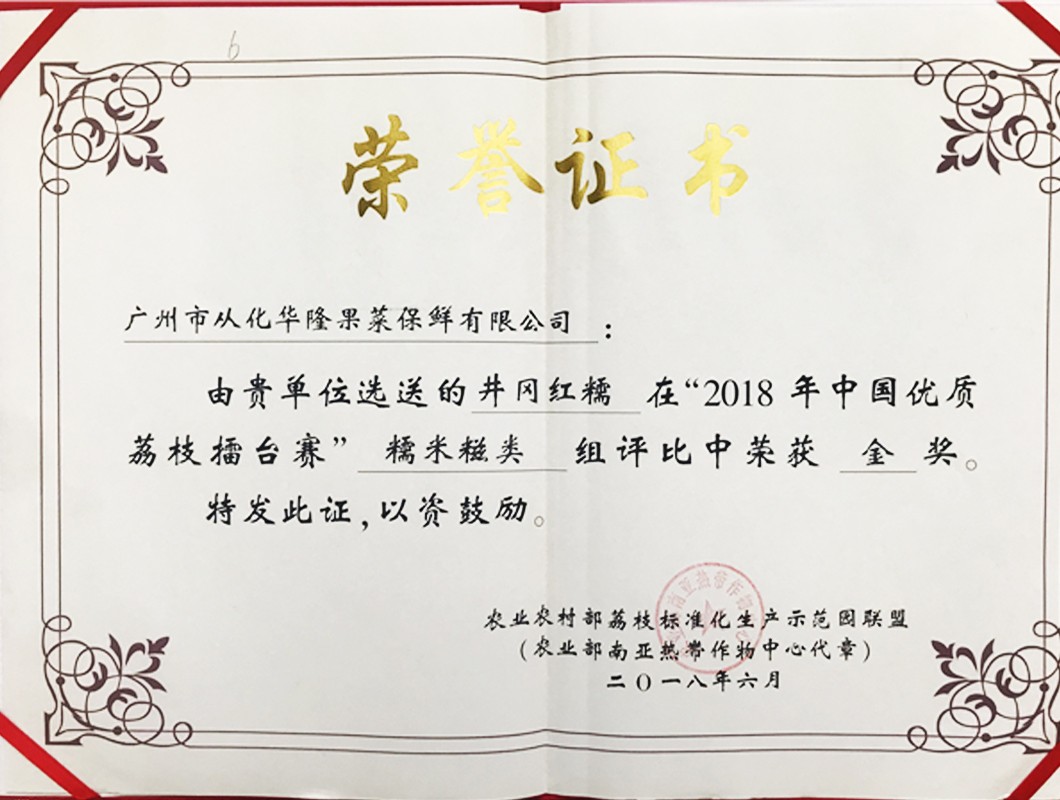 6
荣誉证书
广州市从化华隆果菜保鲜有限公司：
由贵单位选送的井冈红糯在“2018年中国优质
荔枝擂台赛”糯米糍类组评比中荣获金奖。
特发此证，以资鼓励。
农业农村部荔枝标准化生产示范园联盟
（农业部南亚热带作物中心代章）
二〇一八年六月
南亚热带作物